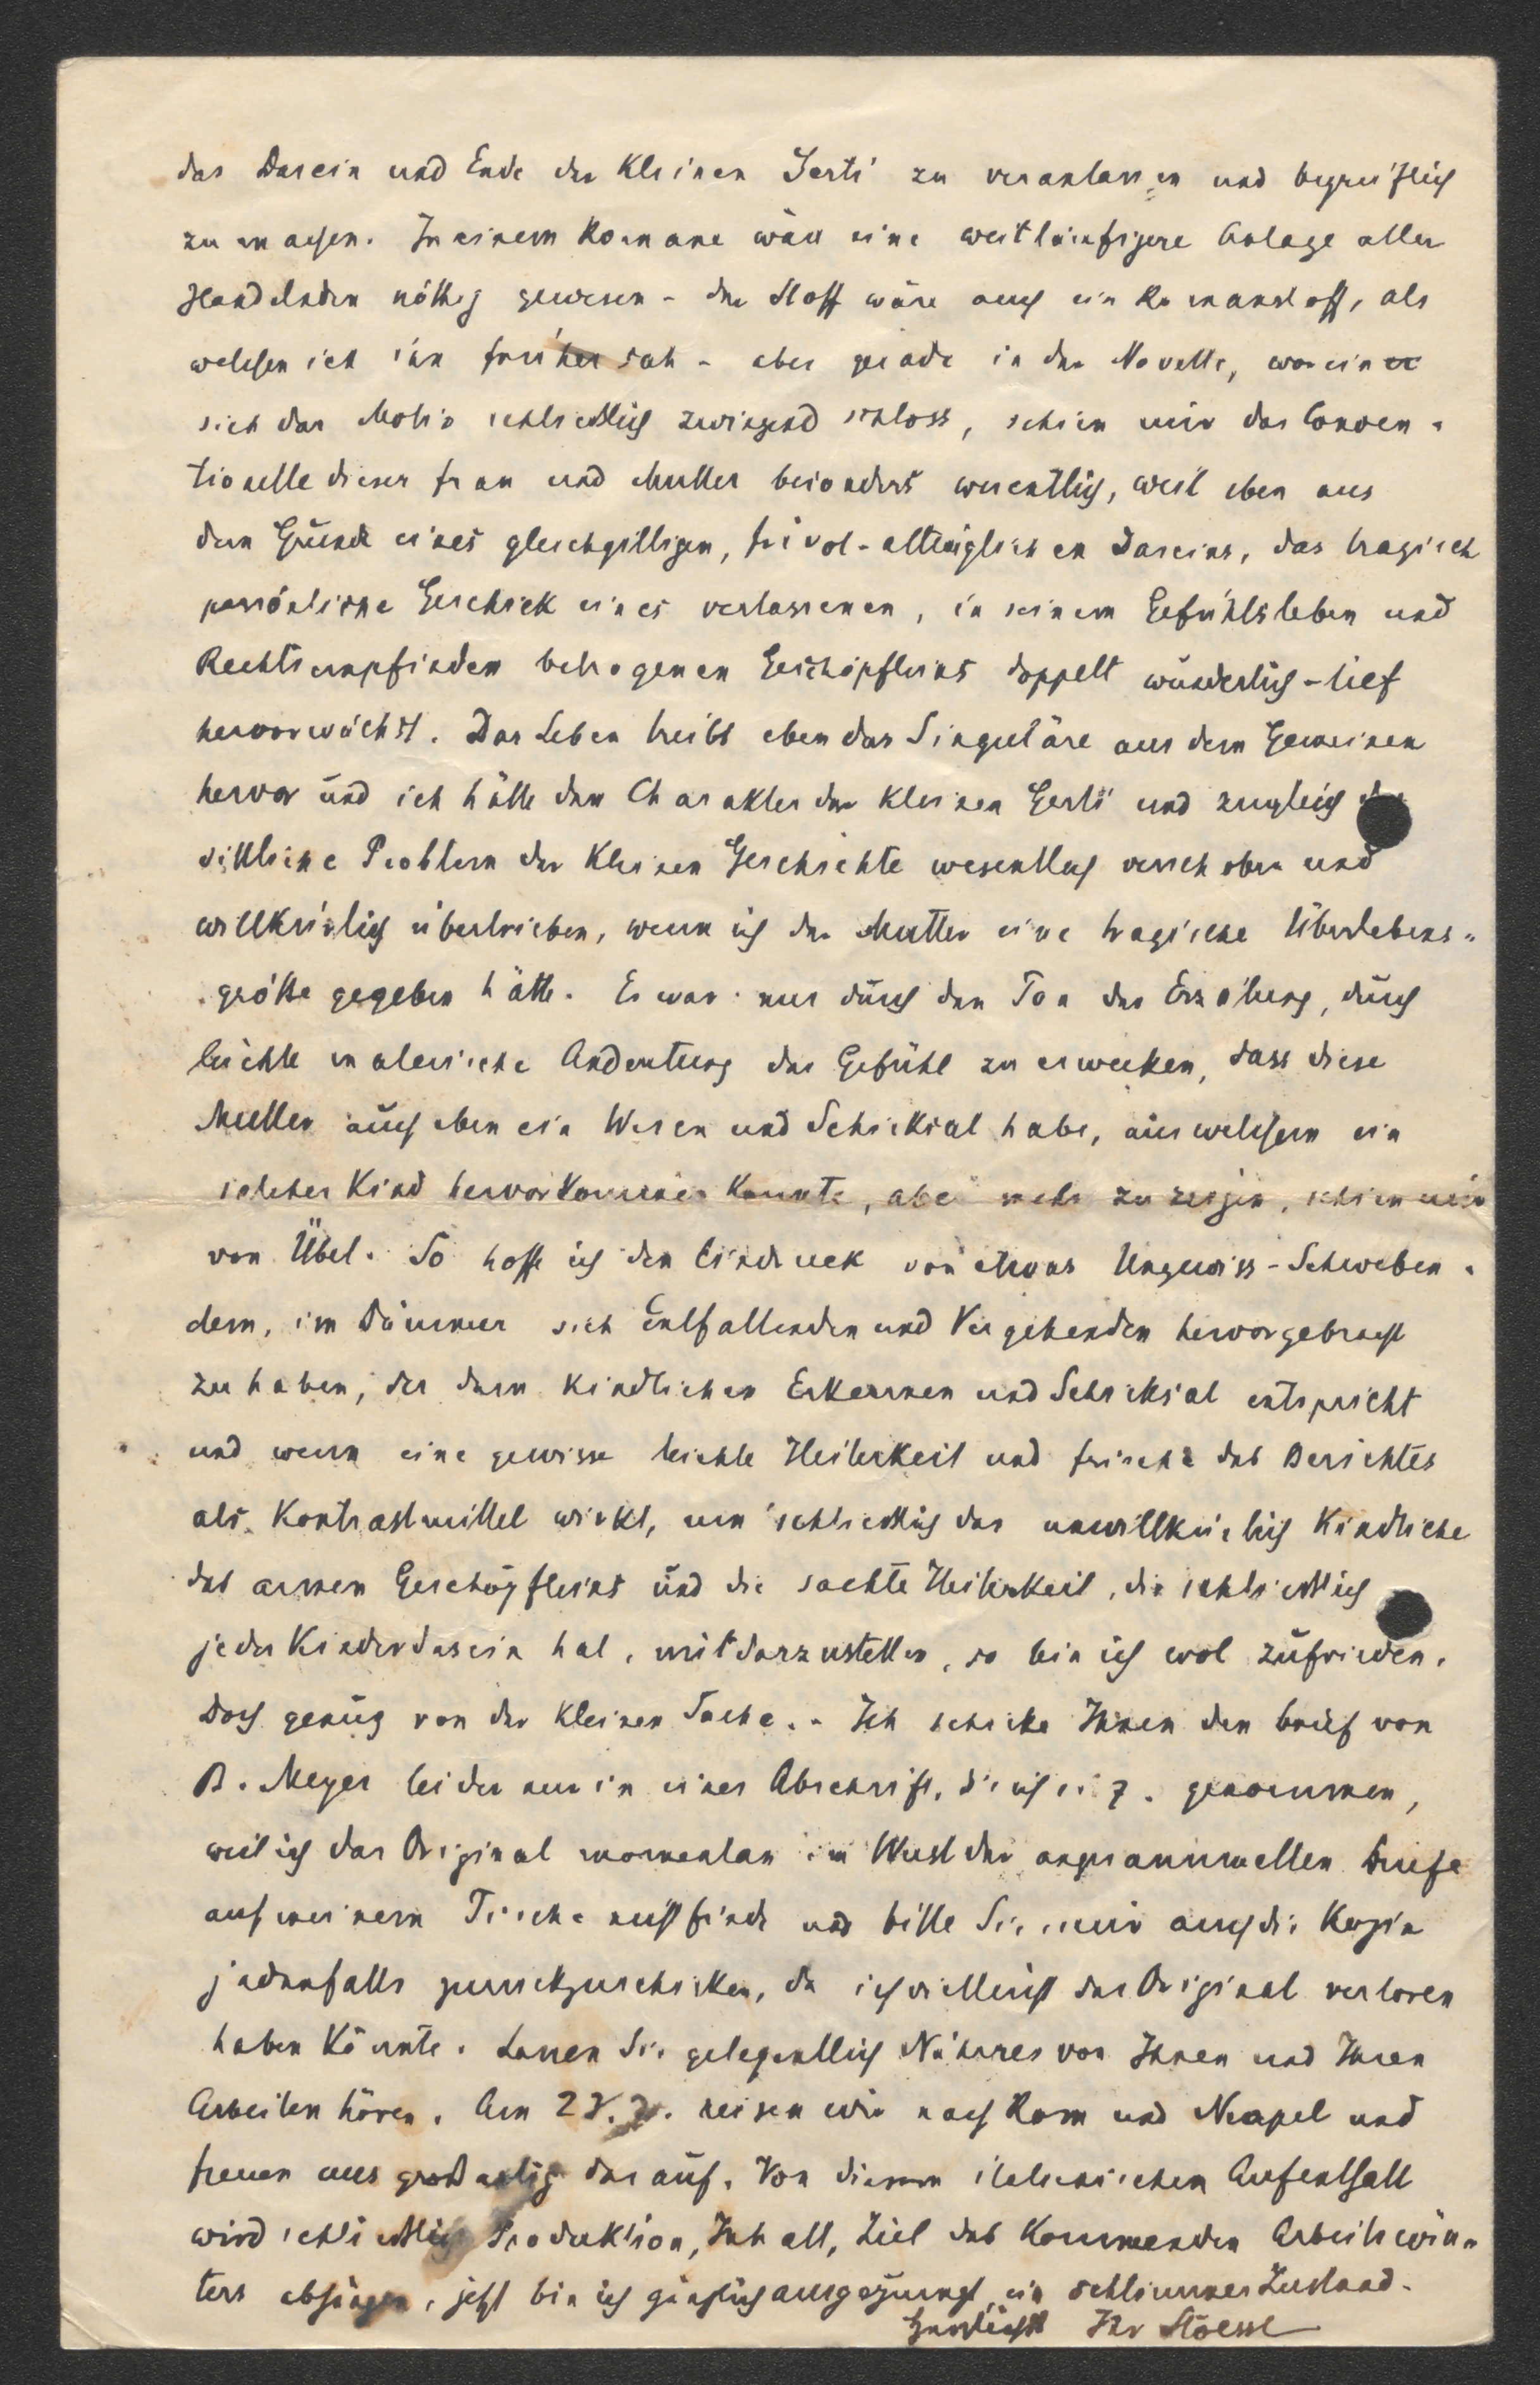 das Dasein und Ende der kleinen Gerti zu veranlassen und begreiflich
zu machen. In einem Romane wäre eine weitläufigere Anlage aller
Handelnden nöthig gewesen - der Stoff wäre auch ein Romanstoff, als
welchen ich ihn früher sah - aber gerade in der Novelle, worein
sich das Motiv schließlich zwingend schloss, schien mir das Conven-
tionelle dieser Frau und Mutter besonders wesentlich, weil eben aus
dem Grunde eines gleichgiltigen, frivol-alltäglichen Daseins, das tragisch
persönliche Geschick eines verlassenen, in seinem Gefühlsleben und
Rechtsempfinden betrogenen Geschöpfleins doppelt wunderlich-tief
hervorwächst. Das Leben treibt eben das Singuläre aus dem Gemeinen
hervor und ich hätte den Charakter der kleinen Gerti und zugleich das
sittliche Problem der kleinen Geschichte wesentlich verschoben und
willkürlich übertrieben, wenn ich der Mutter eine tragische Überlebens-
größe gegeben hätte. Es war nur durch den Ton der Erzählung, durch
leichte malerische Andeutung das Gefühl zu erwecken, dass diese
Mutter auch eben ein Wesen und Schicksal habe, aus welchem ein
solches Kind hervorkommen konnte, aber mehr zu zeigen, schien mir
von Übel. So hoffe ich den Eindruck von etwas Ungewiss-Schweben-
dem, im Dämmer sich Entfaltenden und Vergehenden hervorgebracht
zu haben, der dem kindlichen Erkennen und Schicksal entspricht
und wenn eine gewisse leichte Heiterkeit und Frische des Berichtes
als Kontrastmittel wirkt, um schließlich das unwillkürlich Kindliche
des armen Geschöpfleins und die sachte Heiterkeit, die schließlich
jedes Kinderdasein hat, mit darzustellen, so bin ich wol zufrieden.
Doch genug von der kleinen Sache. - Ich schicke Ihnen den Brief von
R. Meyer leider nur in einer Abschrift, die ich s. Z. genommen,
weil ich das Original momentan im Wust der angesammelten Briefe
auf meinem Tische nicht finde und bitte Sie, mir auch die Kopie
jedenfalls zurückzuschicken, da ich vielleicht das Original verloren
haben könnte. Lassen Sie gelegentlich Näheres von Ihnen und Ihren
Arbeiten hören. Am reisen wir nach Rom und Neapel und
freuen uns großartig darauf. Von diesem italienischen Aufenthalt
wird schließlich Produktion, Inhalt, Ziel des kommenden Arbeitswin-
ters abhängen, jetzt bin ich gänzlich ausgepumpt, ein schlimmer Zustand.
Herzlichst Ihr Stoessl